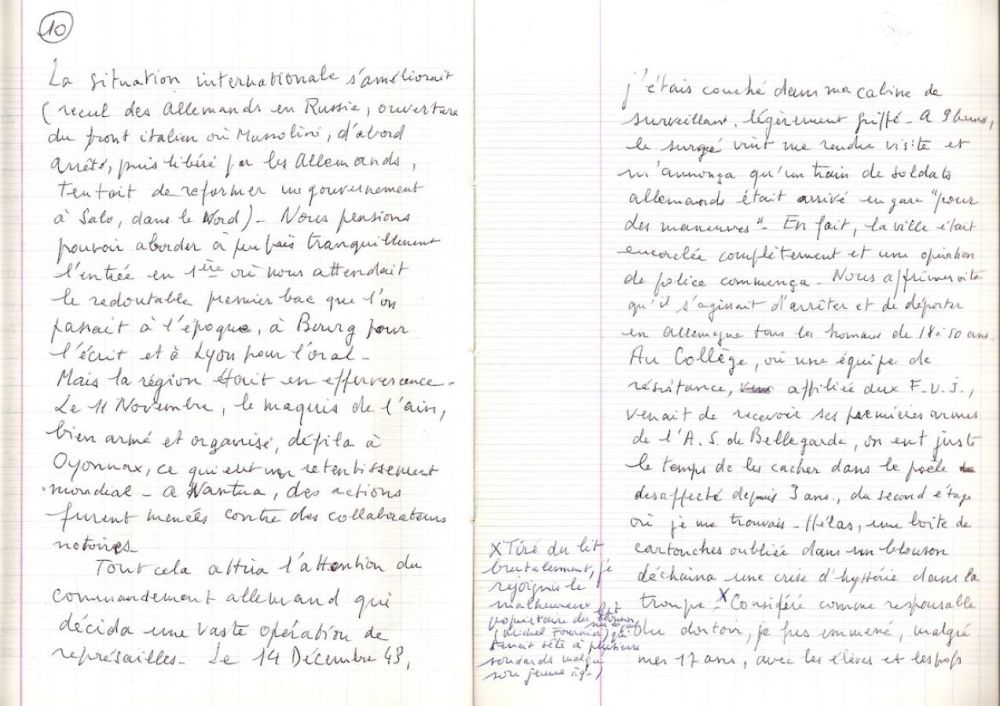 10
La situation internationale s'améliorait
(recul des Allemands en Russie, ouverture
du front italien où Mussolini, d'abord
arrêté, puis libéré par les Allemands,
tentait de reformer un gouvernement
à Salo, dans le Nord) - Nous pensions
pouvoir aborder à peu près tranquillement
l'entrée en 1ère où nous attendait
le redoutable premier bac que l'on
passait à l'époque, à Bourg pour
l'écrit et à Lyon pour l'oral -
Mais la région était en effervescence -
Le 11 Novembre, le maquis de l'ain,
bien armé et organisé, défila à
Oyonnax, ce qui eut un retentissement
mondial - A Nantua, des actions
furent menées contre des collaborateurs
notoires
Tout cela attira l'attention du
commandement allemand qui
décida une vaste opération de
représailles - Le 14 Décembre 43,
j'étais couché dans ma cabine de
surveillant, légèrement grippé - A 9 heures,
le surgé vint me rendre visite et
m'annonça qu'un train de soldats
allemands était arrivé en gare "pour
des manœuvres" - En fait, la ville était
encerclée complètement et une opération
de police commença - Nous apprîmes vite
qu'il s'agissait d'arrêter et de déporter
en allemagne tous les hommes de 18 à 50 ans
Au Collège, où une équipe de
résistance, affiliée aux F.U.J.,
venait de recevoir ses premières armes
de l'A.S. de Bellegarde, on eut juste
le temps de les cacher dans le poêle
desaffecté depuis 3 ans, du second étage
où je me trouvais - Hélas, une boîte de
cartouches oubliée dans un blouson
déchaina une crise d'hystérie dans la
troupe - X Considéré comme responsable
du dortoir, je fus emmené, malgré
mes 17 ans, avec les élèves et les profs
X Tiré du lit
brutalement, je
rejoignis le
malheureux
propriétaire du
(Michel Fournier) qui
tenait tête à plusieurs
soudards malgré
son jeune âge)